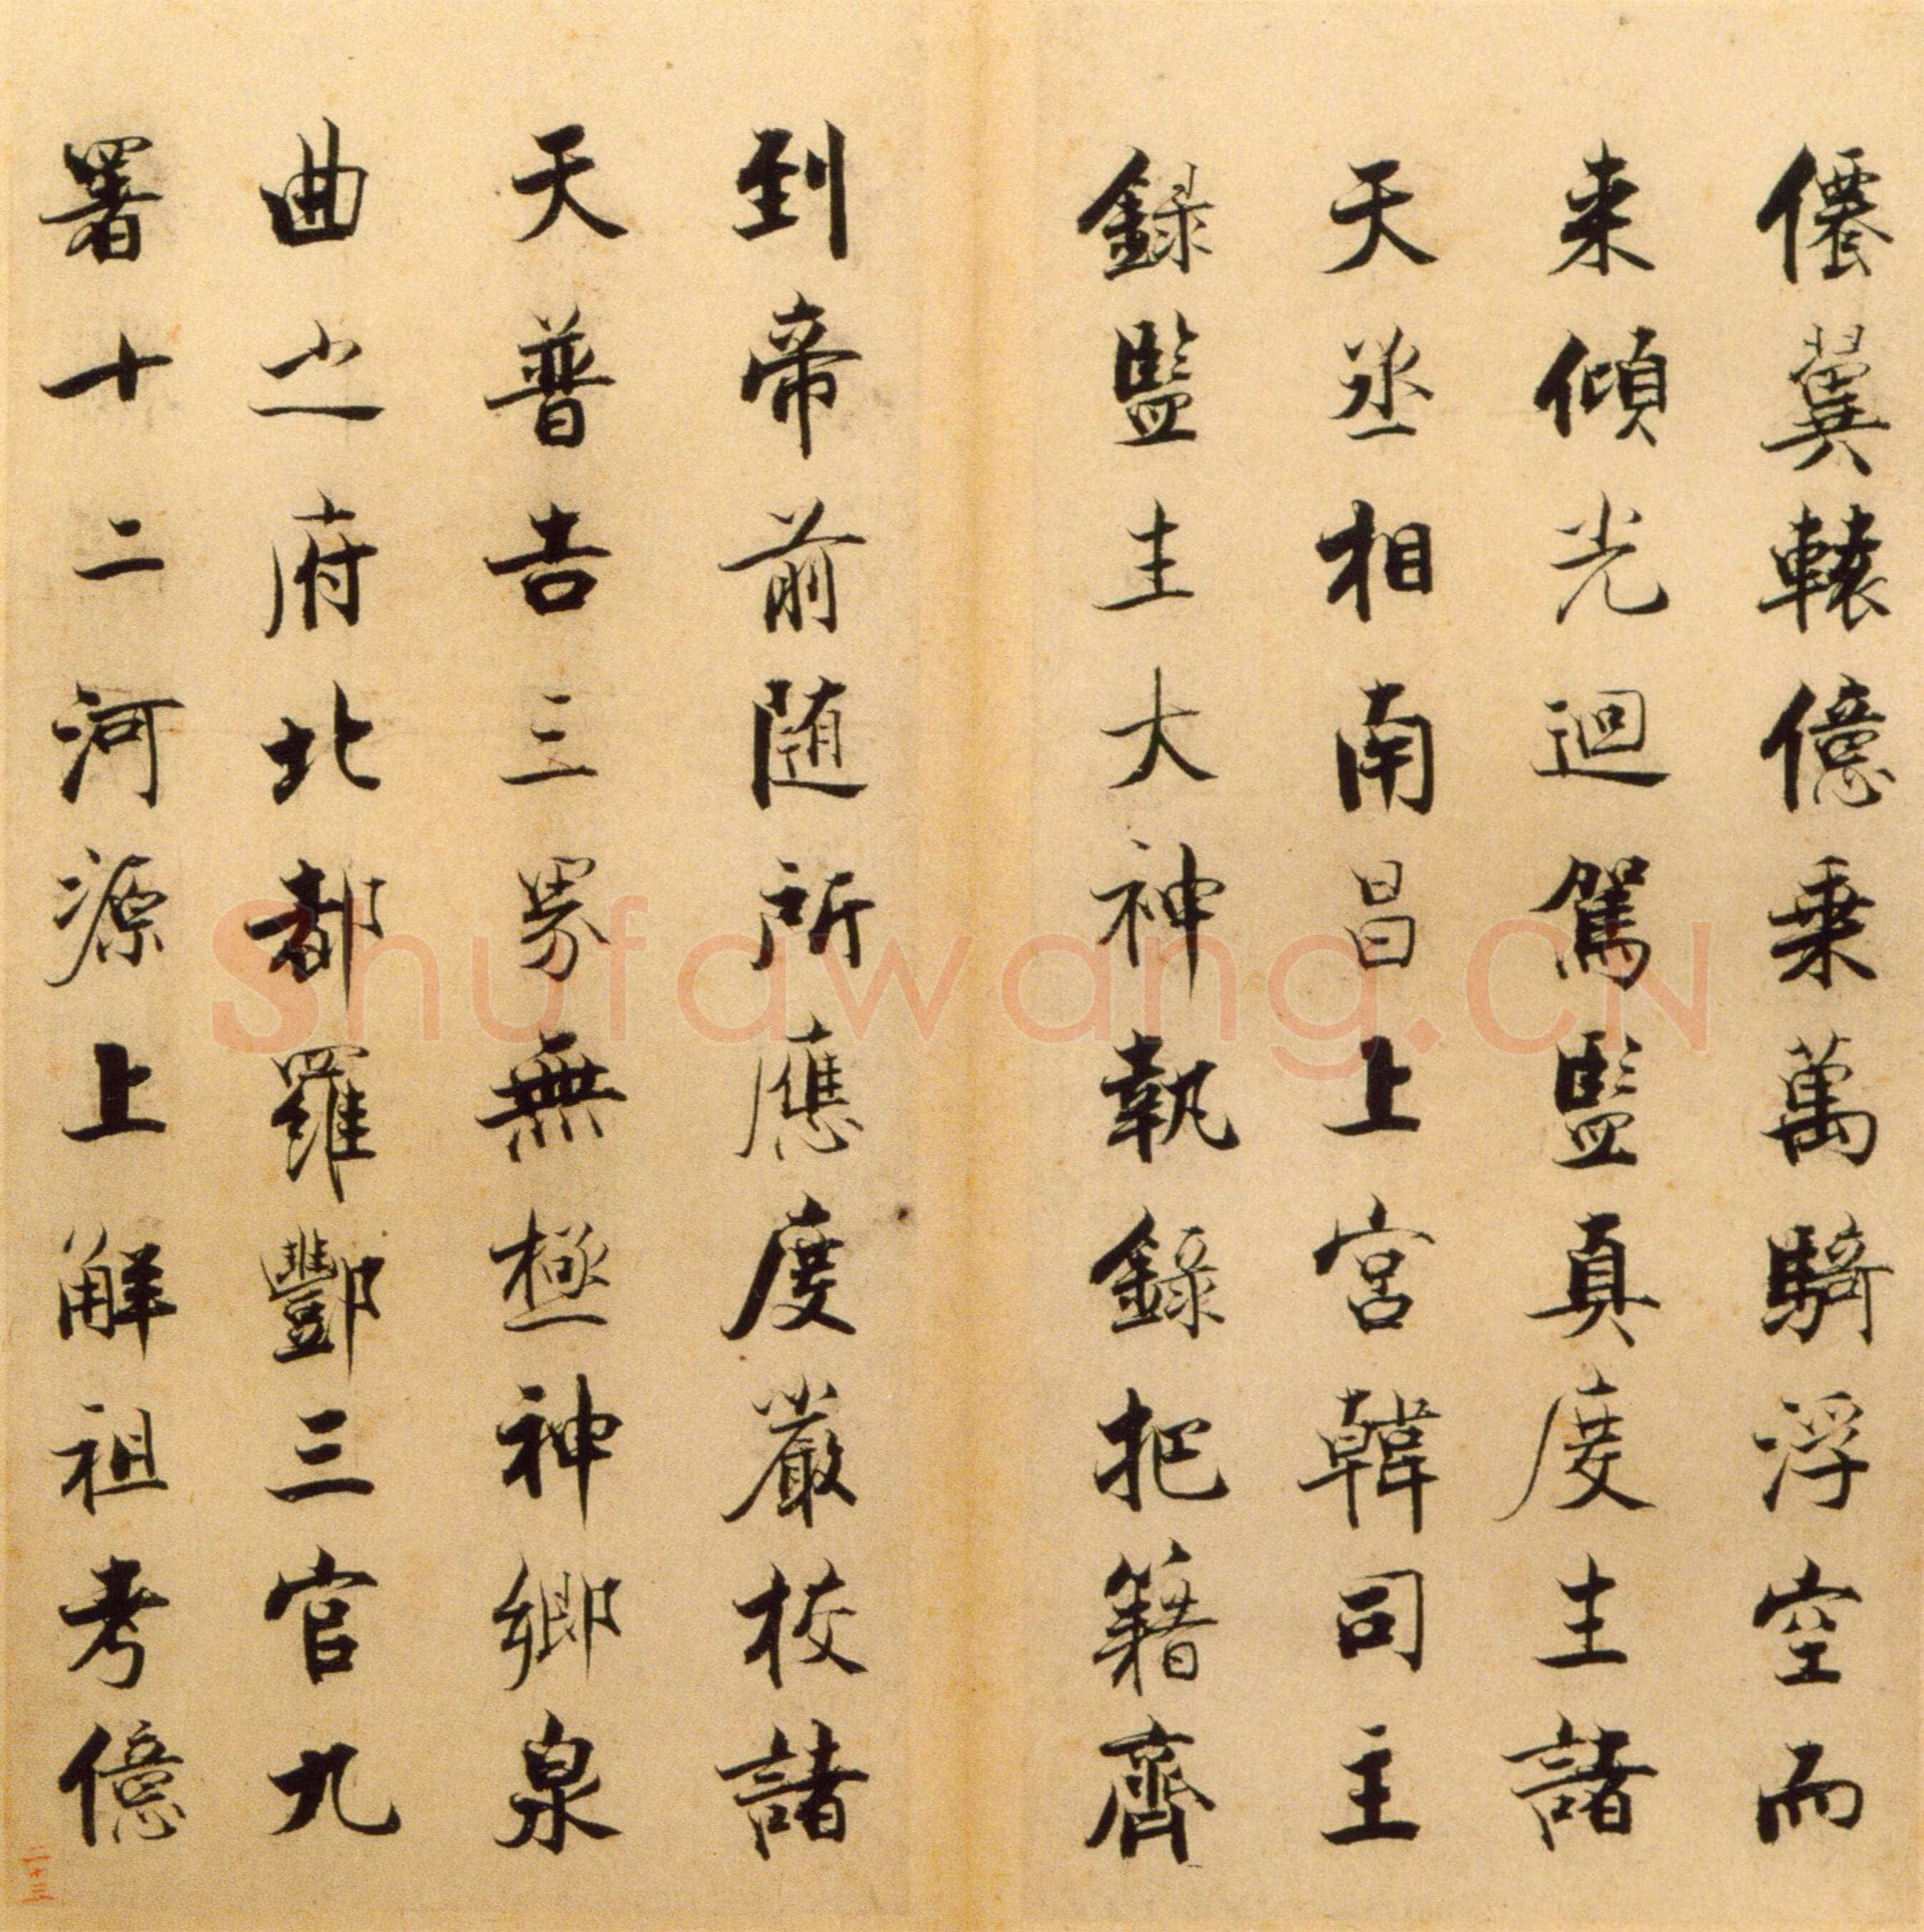 僊蓂轅億乗萬騎浮空而
来傾光迴駕監真度主諸
天丞相南昌上宮韓司主
録監主大神執録把籍齊
到帝前随所應度嚴校諸
天普告三界無極神鄉泉
曲之府北都羅酆三官九
署十二河源上解祖考億
Shufawang.CN